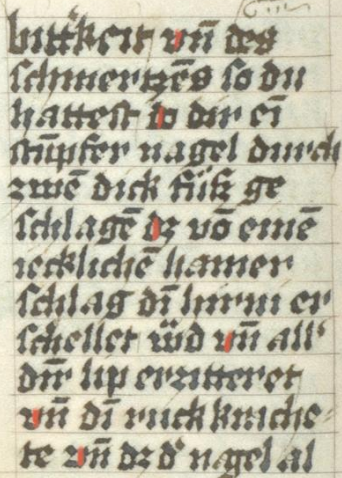 bittˀkeit vn̄ des
schmertzēs so du
hattest do dir ei̅
stu̅pfer nagel durch
zwē dick fu̎ſz ge
schlagē dz vō eine̅
iecklichē hamer
schlag di̅ hirni er
schellet ẅd vn̄ allˀ
din̄ lip erzitteret
vn̄ di̅ ruck kniche
te vn̄ dz dˀ nagel al